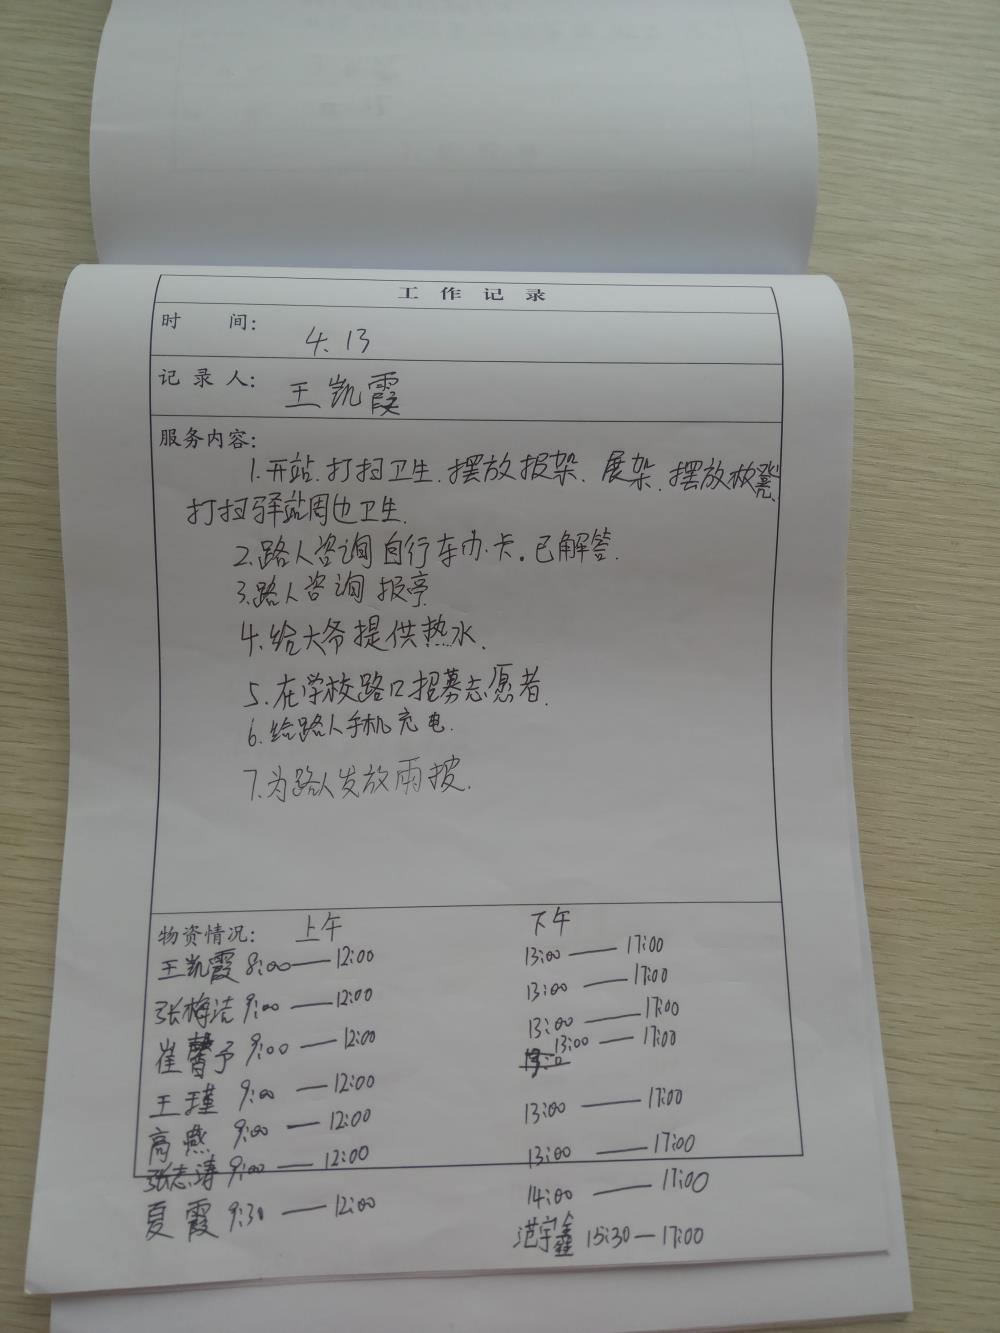 工作记录
时 间: 4.13
记录人: 王凯霞
服务内容:
1.开站.打扫卫生.摆放报架、展架.摆放板凳.
打扫驿站周边卫生.
2.路人咨询自行车办卡。已解答.
3.路人咨询报亭
4.给大爷提供热水.
5.在学校路口招募志愿者.
6.给路人手机充电.
7.为路人发放雨披.
物资情况: 上午 下午
王凯霞 8:00—12:00 13:00—17:00
张梅洁 9:00—12:00 13:00—17:00
崔馨予 9:00—12:00 13:00—17:00
13:00—17:00
王瑾 9:00—12:00 13:00—17:00
高燕 9:00—12:00 13:00—17:00
张志涛 9:00—12:00 14:00—17:00
夏霞 9:30—12:00 范宇鑫 15:30—17:00